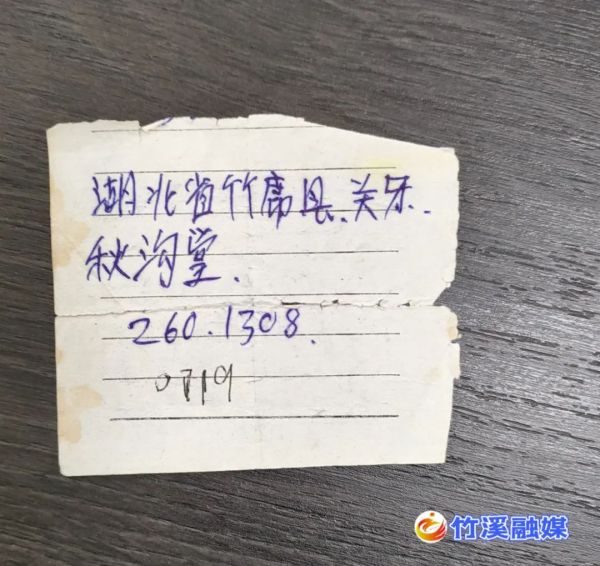 湖北省竹席县.关牙.
秋沟堂.
260.1308.
0719
竹溪融媒